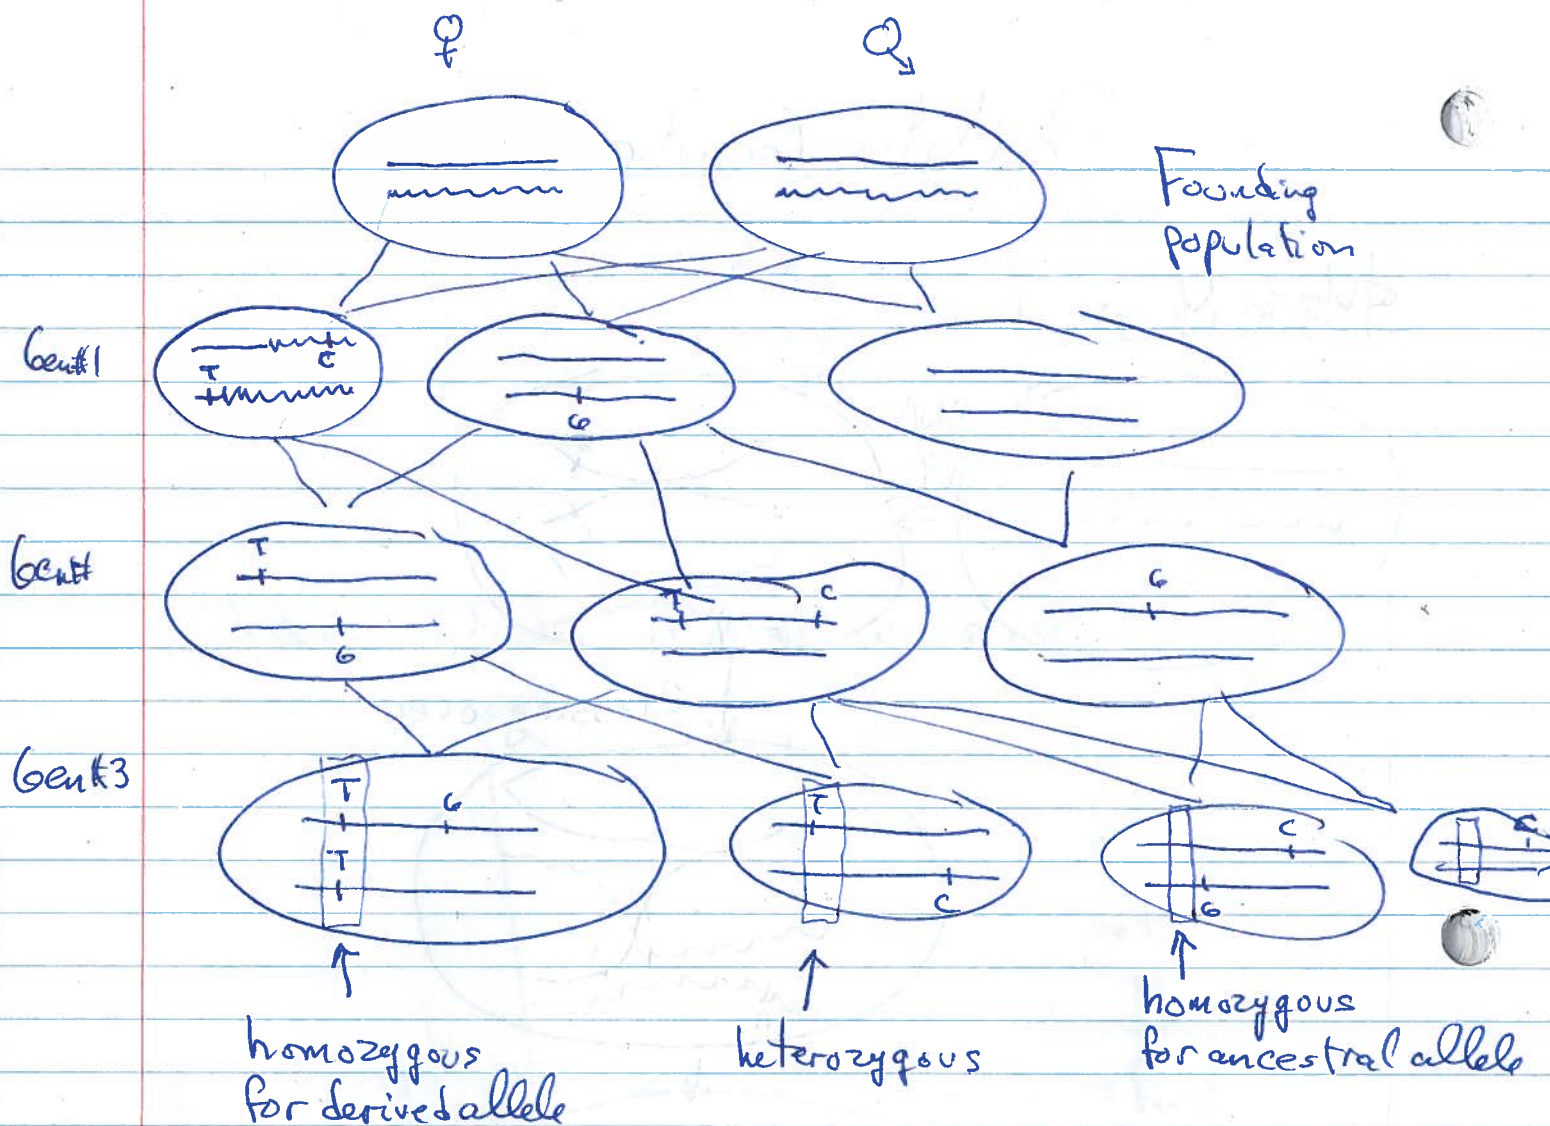 ♀
♂
Founding
population
Gen#1
C
T
G
Gen#
T
G
T
C
G
Gen#3
T
G
T
T
C
C
G
C
homozygous
for derived allele
heterozygous
homozygous
for ancestral allele